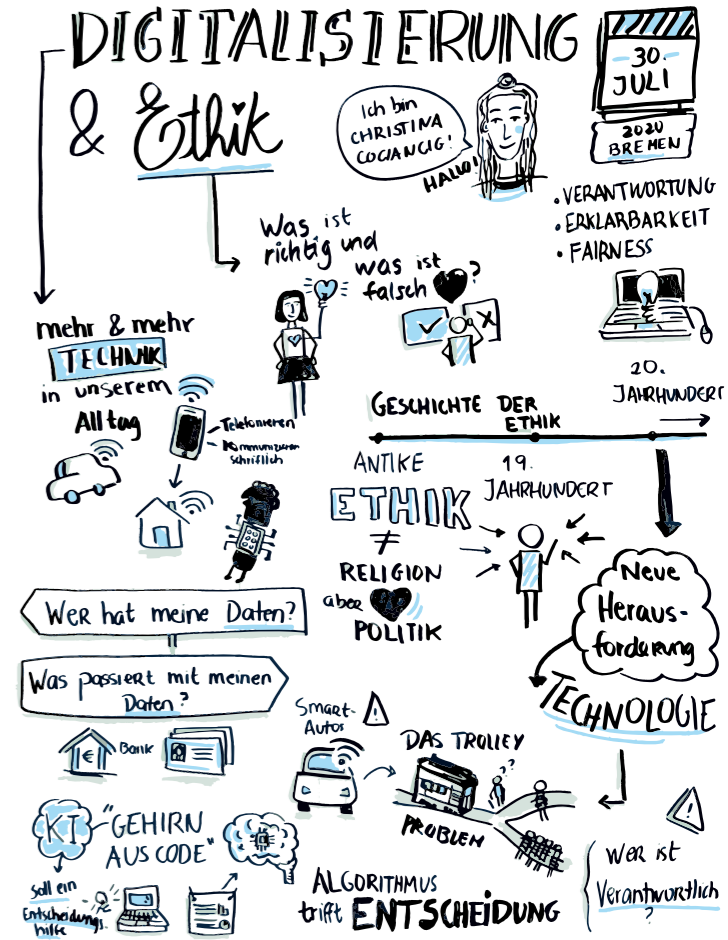 DIGITALISIERUNG
& Ethik
Ich bin
CHRISTINA
COCIANCIG!
HALLO!
30.
JULI
2020
BREMEN
• VERANTWORTUNG
• ERKLARBARKEIT
• FAIRNESS
Was ist
richtig und
was ist
falsch ?
X
mehr & mehr
TECHNIK
in unserem
Alltag
Telefonieren
Kommunizieren
schriftlich
GESCHICHTE DER
ETHIK
20.
JAHRHUNDERT
ANTIKE
19.
JAHRHUNDERT
ETHIK
≠
RELIGION
aber
POLITIK
Neue
Heraus-
forderung
TECHNOLOGIE
WER hat meine Daten?
Was passiert mit meinen
Daten?
€
Bank
Smart-
Autos
!
DAS TROLLEY
??
PROBLEM
!
WER ist
Verantwortlich
?
KI
"GEHIRN
AUS CODE"
soll ein
Entscheidungs
hilfe
ALGORITHMUS
trifft ENTSCHEIDUNG